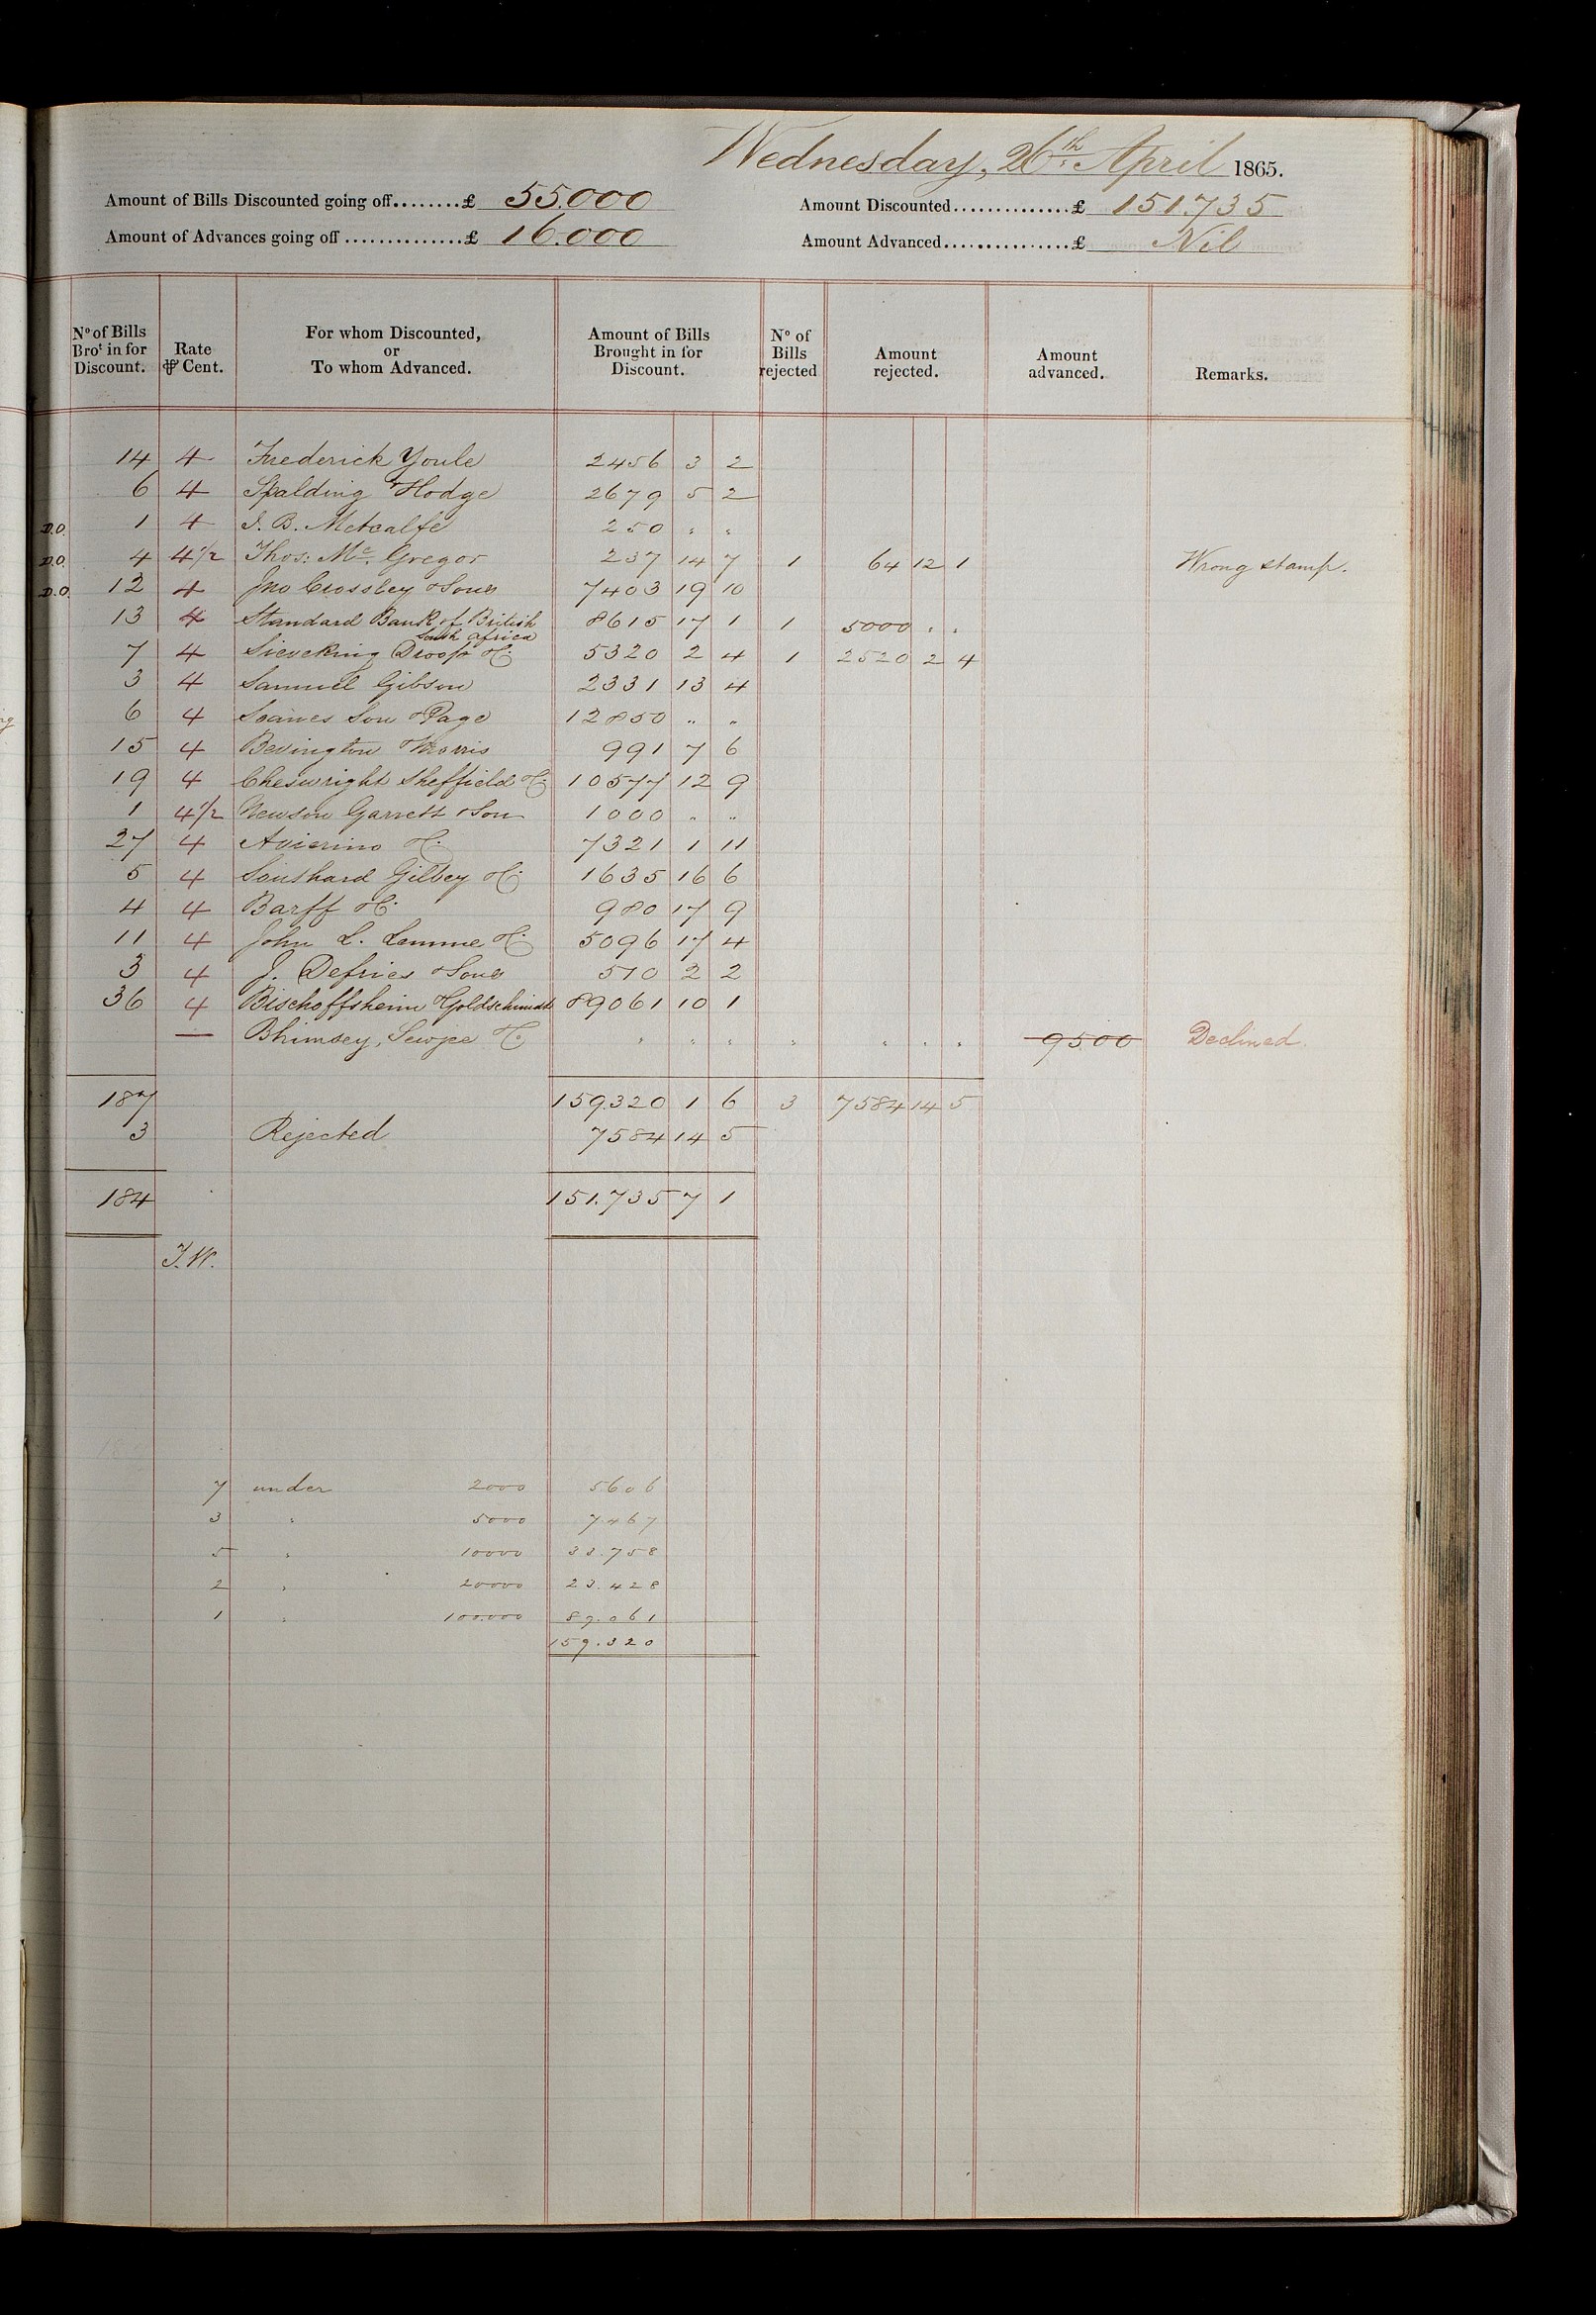 Wednesday, 26th April 1865.
Amount of Bills Discounted going off........£ 55.000 Amount Discounted..............£ 151.735
Amount of Advances going off...............£ 16.000 Amount Advanced................£ Nil
No of Bills Brot in for Discount. Rate ⅌ Cent. For whom Discounted, or To whom Advanced. Amount of Bills Brought in for Discount. No of Bills rejected Amount rejected. Amount advanced. Remarks.
14 4 Frederick Youle 2456 3 2
6 4 Spalding & Hodge 2679 5 2
D.O. 1 4 J. B. Metcalfe 250 " "
D.O. 4 4 1/2 Thos: Mc. Gregor 237 14 7 1 64 12 1 Wrong stamp.
D.O. 12 4 Jno Crossley & Sons 7403 19 10
13 4 Standard Bank of British South Africa 8615 17 1 1 5000 . .
7 4 Sieveking Droop & Co 5320 2 4 1 2520 2 4
3 4 Samuel Gibson 2331 13 4
6 4 Soames Son & Page 12850 " "
15 4 Bevington & Morris 991 7 6
19 4 Cheswright Sheffield & Co 10577 12 9
1 4 1/2 Newson Garrett & Son 1000 " "
27 4 Avierino & Co. 7321 1 11
5 4 Southard Gilbey & Co 1635 16 6
4 4 Barff & Co. 980 17 9
11 4 John L. Lemme & Co 5096 17 4
3 4 J. Defries & Sons 510 2 2
36 4 Bischoffsheim & Goldschmidt 89061 10 1
— Bhimsey, Sewjee & Co " " " " " " " 9500 Declined.
187 159.320 1 6 3 7584 14 5
3 Rejected 7584 14 5
184 151.735 7 1
J.W.
7 under 2000 5606
3 " 5000 7467
5 " 10000 33.758
2 " 20000 23.428
1 " 100.000 89.061
159.320